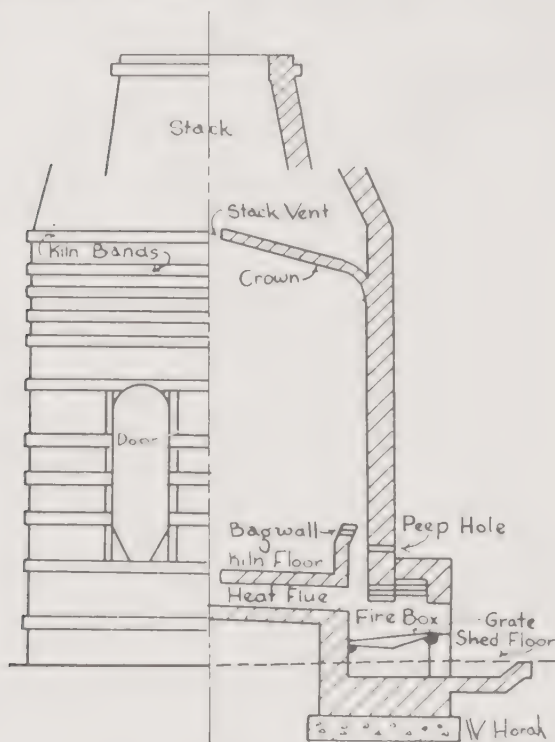 Stack
Stack Vent
Kiln Bands
Crown
Door
Bagwall
Peep Hole
Kiln Floor
Heat Flue
Fire Box
Grate
Shed Floor
W Horak